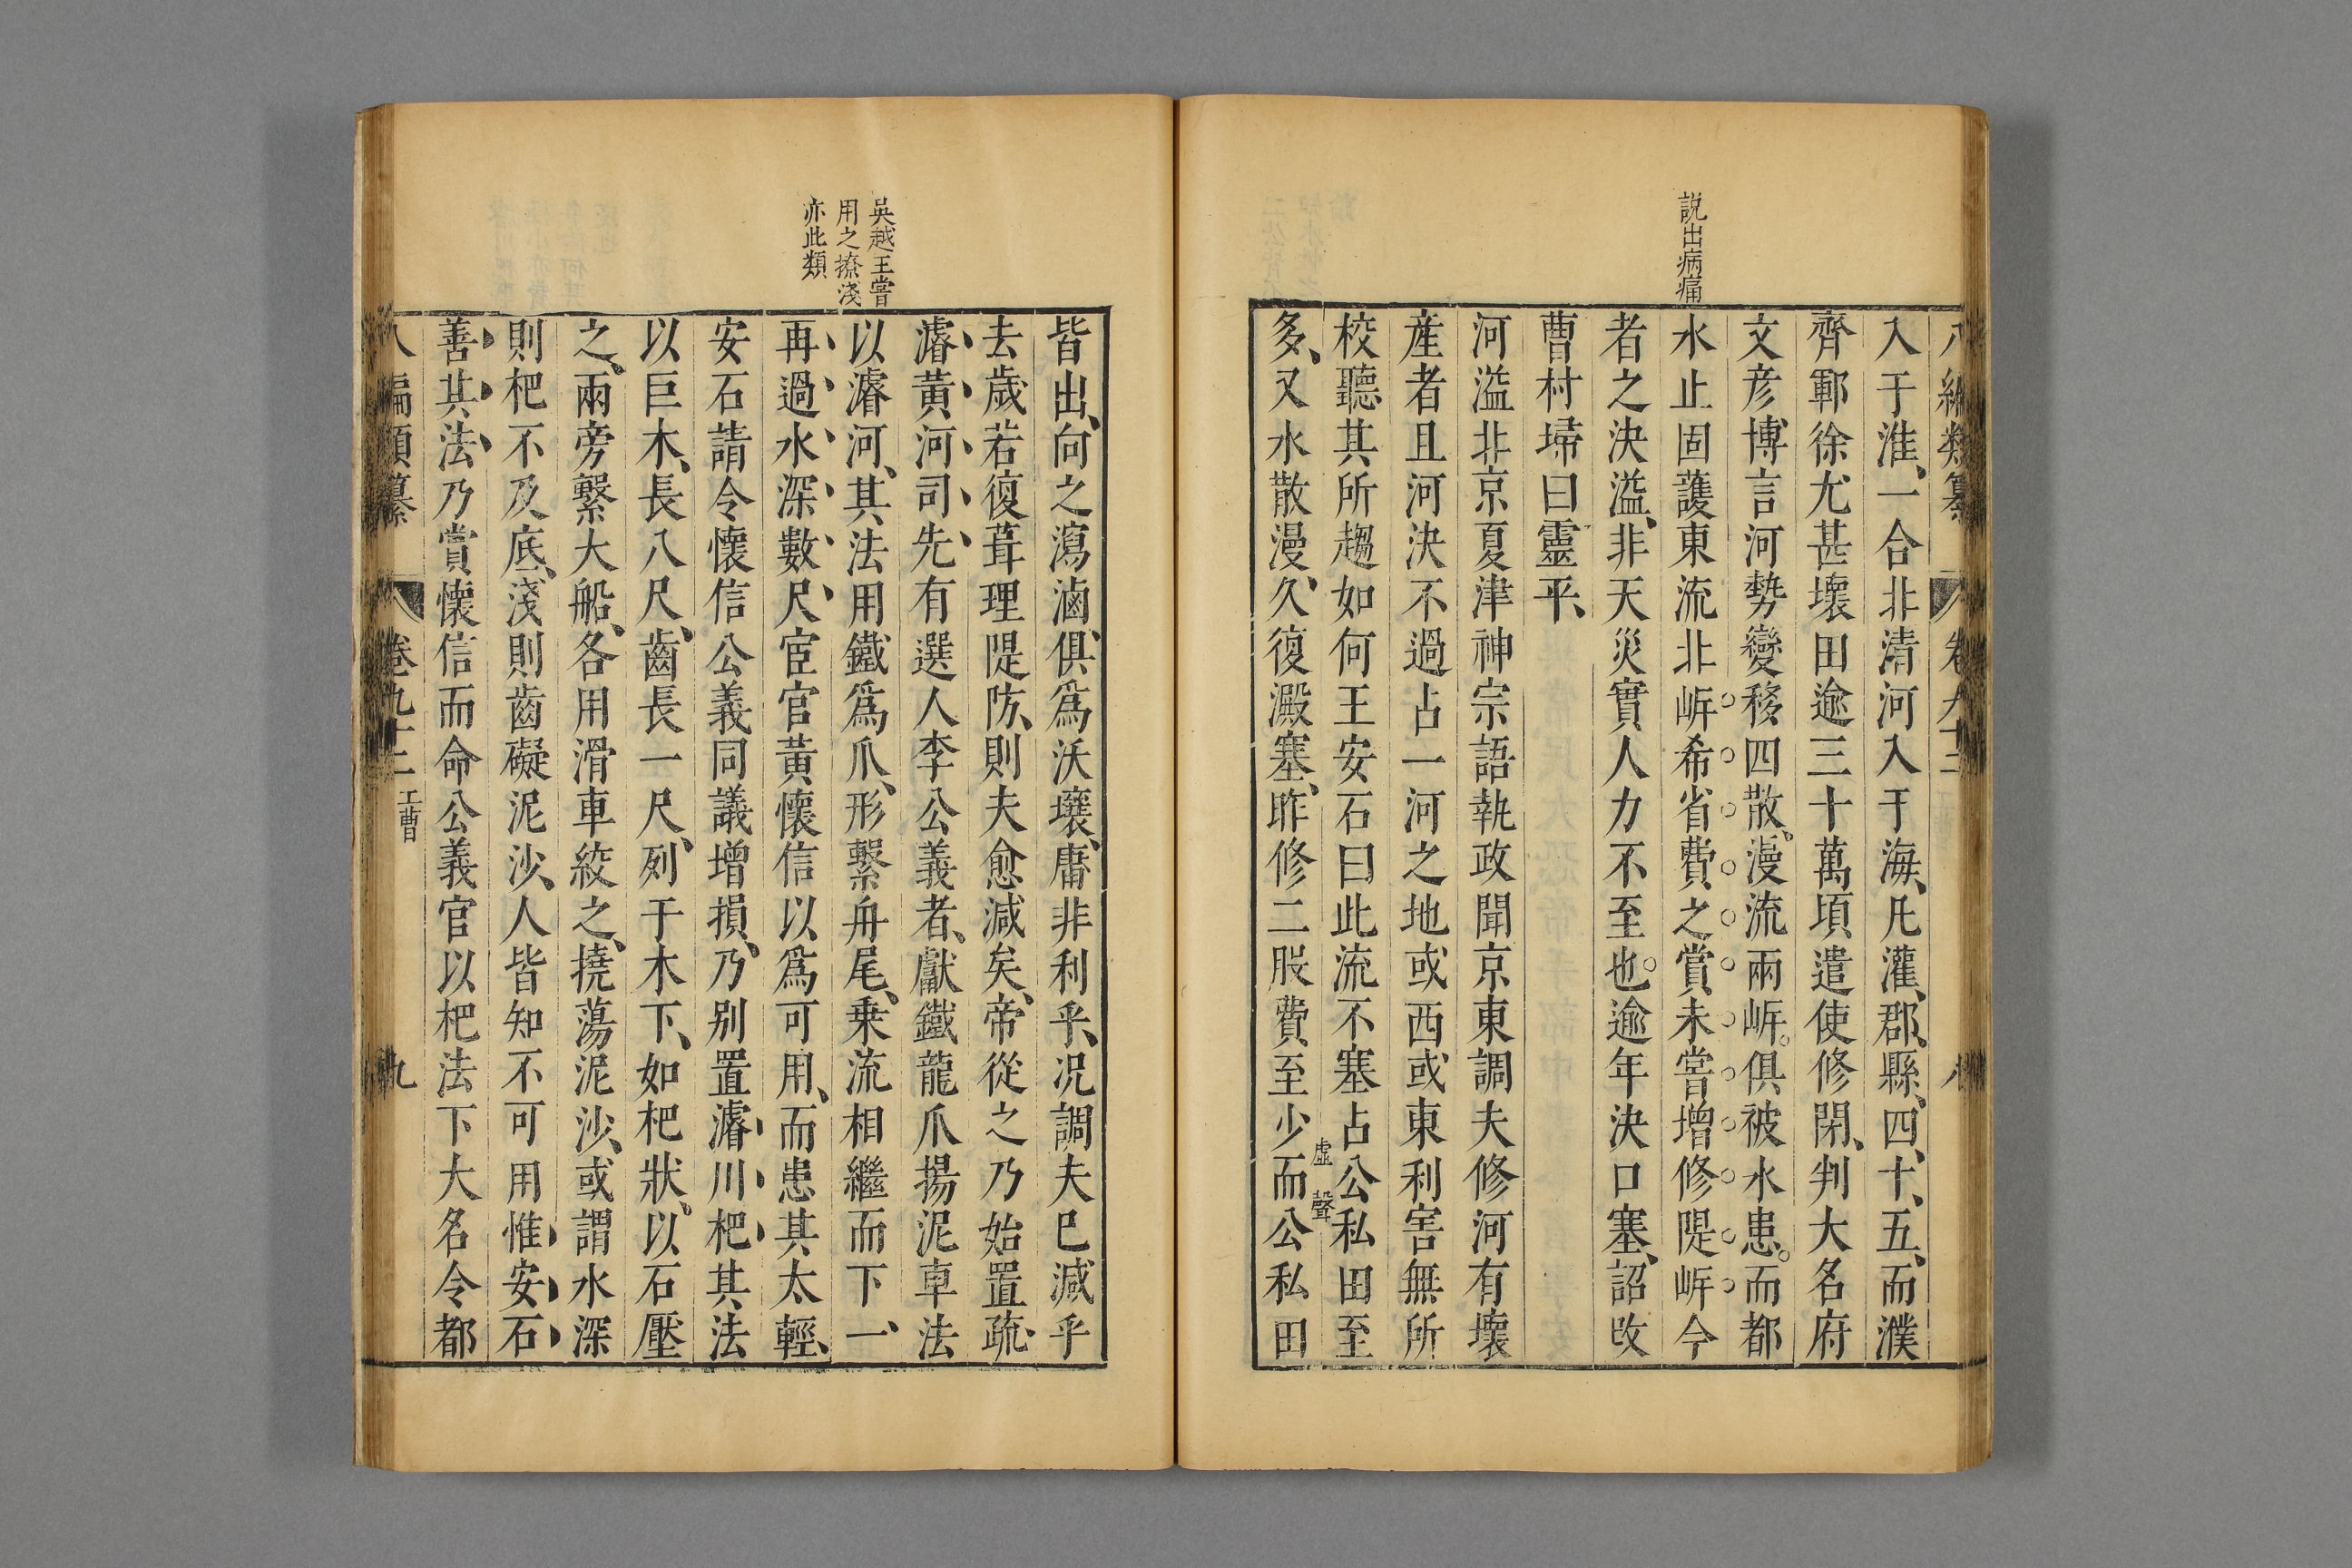 八編類纂 卷九十二 八
說出病痛
入于淮、一合非清河入于海、凡灌、郡、縣、四、十、五、而濮
齊鄆徐尤甚壞田逾三十萬頃遣使修閉、判大名府
文彥博言河勢變移四散。漫流兩岍。俱被水患。而都
水止固護東流北岍希省費之賞未嘗增修隄岍今
者之決溢、非天災實人力不至也。逾年決口塞、詔改
曹村埽曰靈平、
河溢非京夏津神宗語執政聞京東調夫修河有壞
產者且河決不過占一河之地或西或東利害無所
校聽其所趨如何王安石曰此流不塞占公私田至
虛聲
多、又水散漫、久、復澱塞、昨修二股費至少而公私田
吳越王嘗
用之撩淺
亦此類
皆出、向之瀉滷、俱爲沃壤、庸非利乎、況調夫巳減乎
去歲若復葺理隄防、則夫愈減矣、帝從之乃始置疏
濬黃河司先有選人李公義者、獻鐵龍爪揚泥車法
以濬河、其法用鐵爲爪、形繫舟尾、乗流相繼而下、一
再過水深數尺宦官黃懷信以爲可用、而患其太輕、
安石請令懷信公義同議增損、乃別置濬川杷其法
以巨木、長八尺、齒長一尺、列于木下、如杷狀、以石壓
之、兩旁繫大船、各用滑車絞之、撓蕩泥沙、或謂水深
則杷不及底、淺則齒礙泥沙、人皆知不可用惟安石
善其法乃賞懷信而命公義官以杷法下大名令都
八編類纂 卷九十二 工曹 九